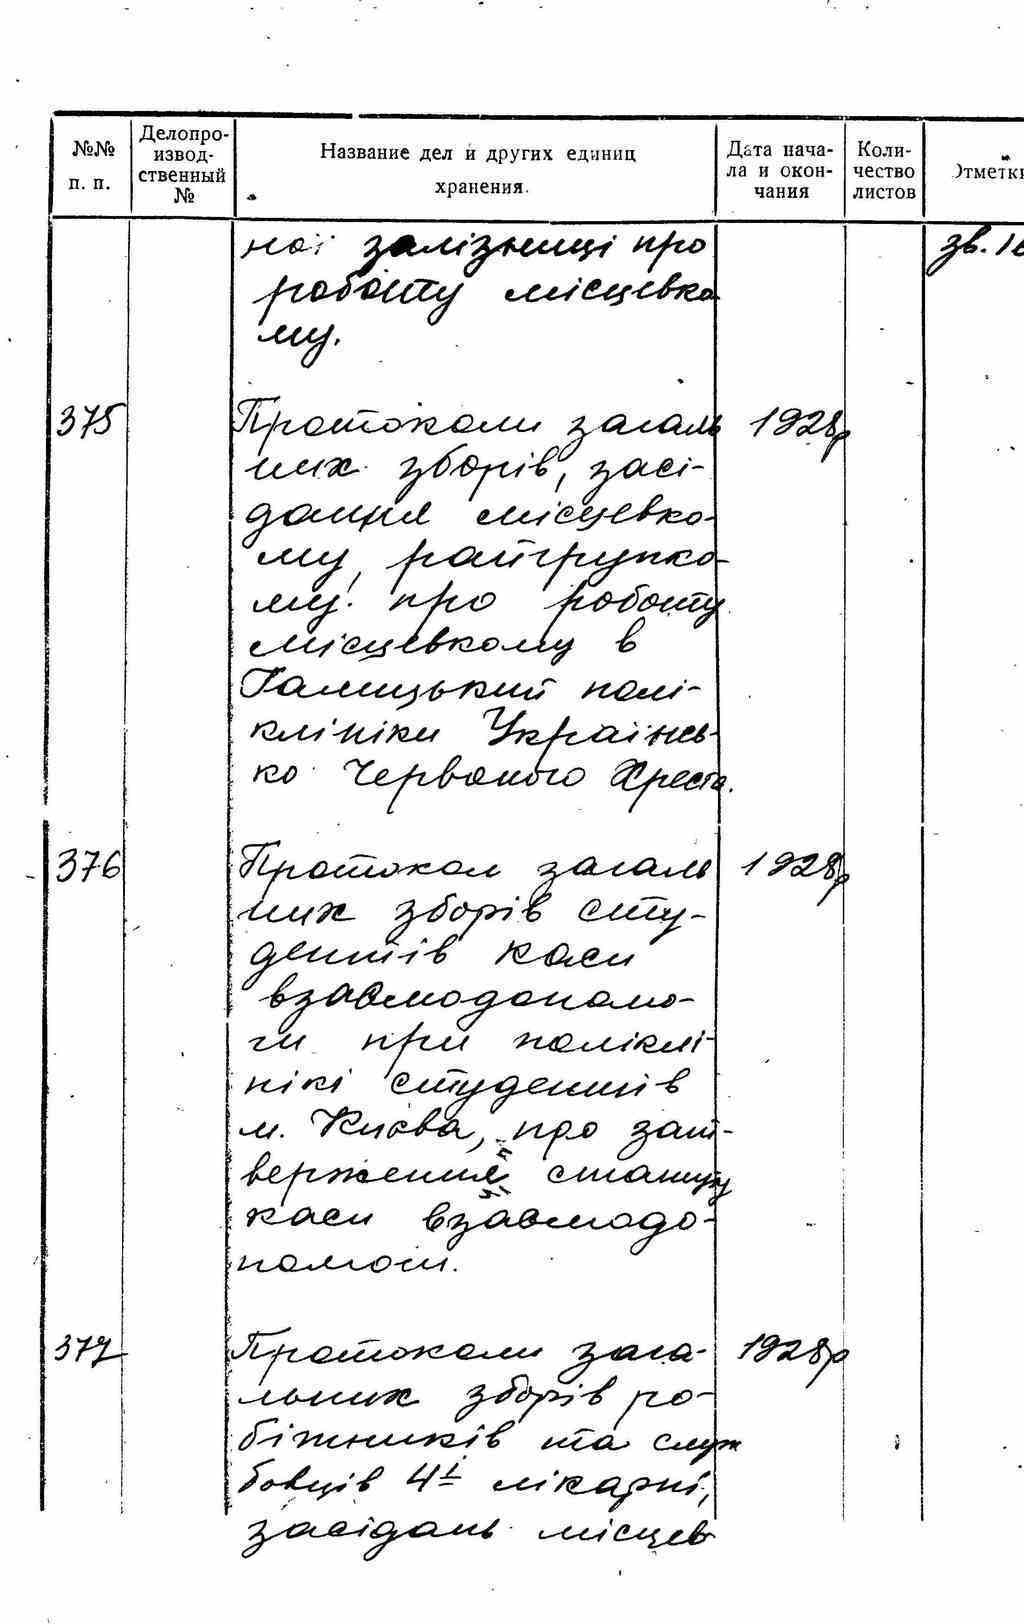 №№ п. п.
Делопро-
извод-
ственный
№
Название дел и других единиц
хранения.
Дата нача-
ла и окон-
чания
Коли-
чество
листов
Отметки
ної залізниці про
роботу місцевко
му.
зв. 16
375 Протоколи загаль 1928р
них зборів, засі-
дання місцевко-
му, райгрупко-
му про роботу
місцевкому в
Галицький полі-
клініки Українсь-
ко Червоного Хреста.
376 Протокол загаль 1928р
них зборів сту-
дентів каси
взаємодопомо-
ги при поліклі-
нікі студентів
м. Києва, про зат-
верження статуту
каси взаємодо-
помоги.
377 Протоколи зага- 1928р
льних зборів ро-
бітників та служ
бовців 4ї лікарні,
засідань місцев-